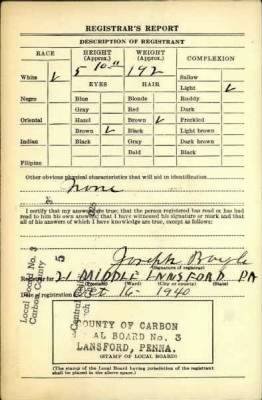 REGISTRAR'S REPORT
DESCRIPTION OF REGISTRANT
RACE HEIGHT (Approx.) WEIGHT (Approx.) COMPLEXION
5 10" 192
White EYES HAIR Sallow
Light
Negro Blue Blonde Ruddy
Gray Red Dark
Oriental Hazel Brown Freckled
Brown Black Light brown
Indian Black Gray Dark brown
Bald Black
Filipino
Other obvious physical characteristics that will aid in identification
None
I certify that my answers are true; that the person registered has read or has had
read to him his own answers; that I have witnessed his signature or mark and that
all of his answers of which I have knowledge are true, except as follows:
Local Board No. 3
Carbon County
Joseph Boyle
(Signature of registrar)
Registrar for 21 MIDDLE LANSFORD PA
(Precinct) (Ward) (City or county) (State)
Date of registration Oct 16- 1940
COUNTY OF CARBON
AL BOARD No. 3
LANSFORD, PENNA.
(STAMP OF LOCAL BOARD)
(The stamp of the Local Board having jurisdiction of the registrant
shall be placed in the above space.)